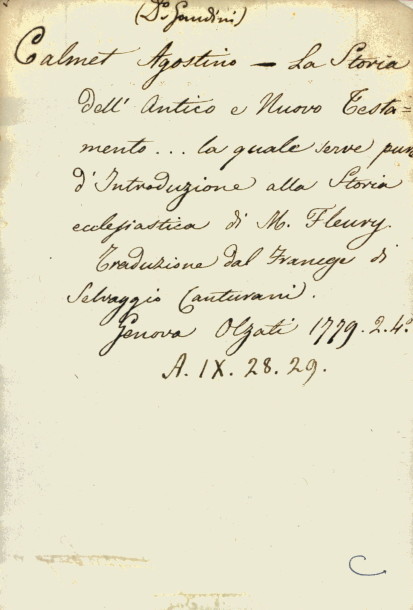 (D.º Gandini)
Calmet Agostino — La Storia
dell' Antico e Nuovo Testa=
mento... la quale serve pur
d'Introduzione alla Storia
ecclesiastica di M. Fleury.
Traduzione dal Francese di
Selvaggio Canturani.
Genova Olzati 1779. 2. 4º
A. IX. 28. 29.
C